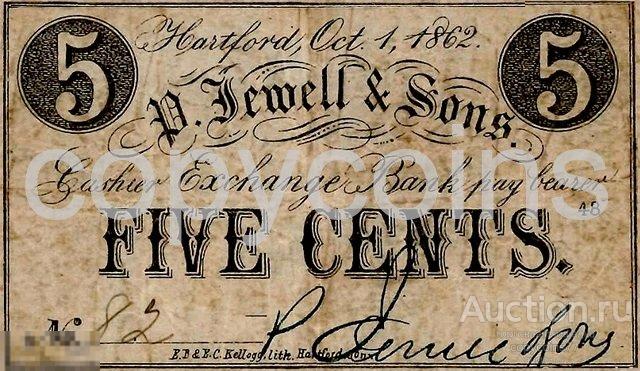 5 Hartford, Oct. 1, 1862. 5
P. Jewell & Sons.
copycoins
Cashier Exchange Bank pay bearer
48
FIVE CENTS.
No 82
P Jewell & Sons
E.B & E.C. Kellogg, lith. Hartford, Conn.
Auction.ru